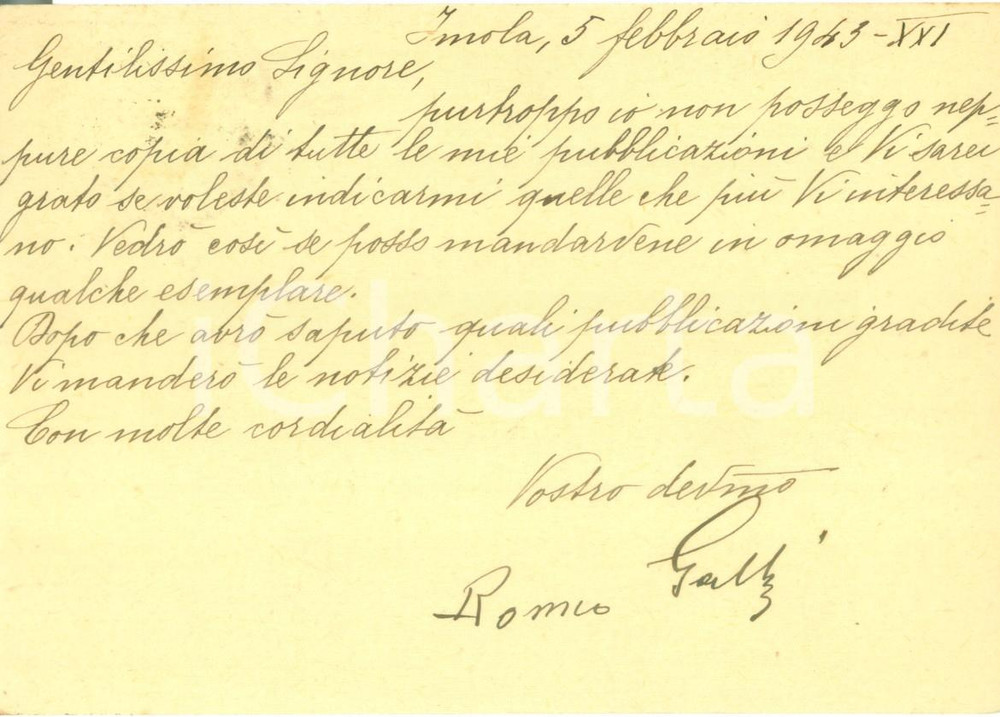 Imola, 5 febbraio 1943-XXI
Gentilissimo Signore,
purtroppo io non posseggo nep=
pure copia di tutte le mie pubblicazioni e Vi sarei
grato se voleste indicarmi quelle che più Vi interessa=
no. Vedrò così se posso mandarvene in omaggio
qualche esemplare.
Dopo che avrò saputo quali pubblicazioni gradite
Vi manderò le notizie desiderate.
Con molte cordialità
Vostro devmo
Romeo Galli
iCharta